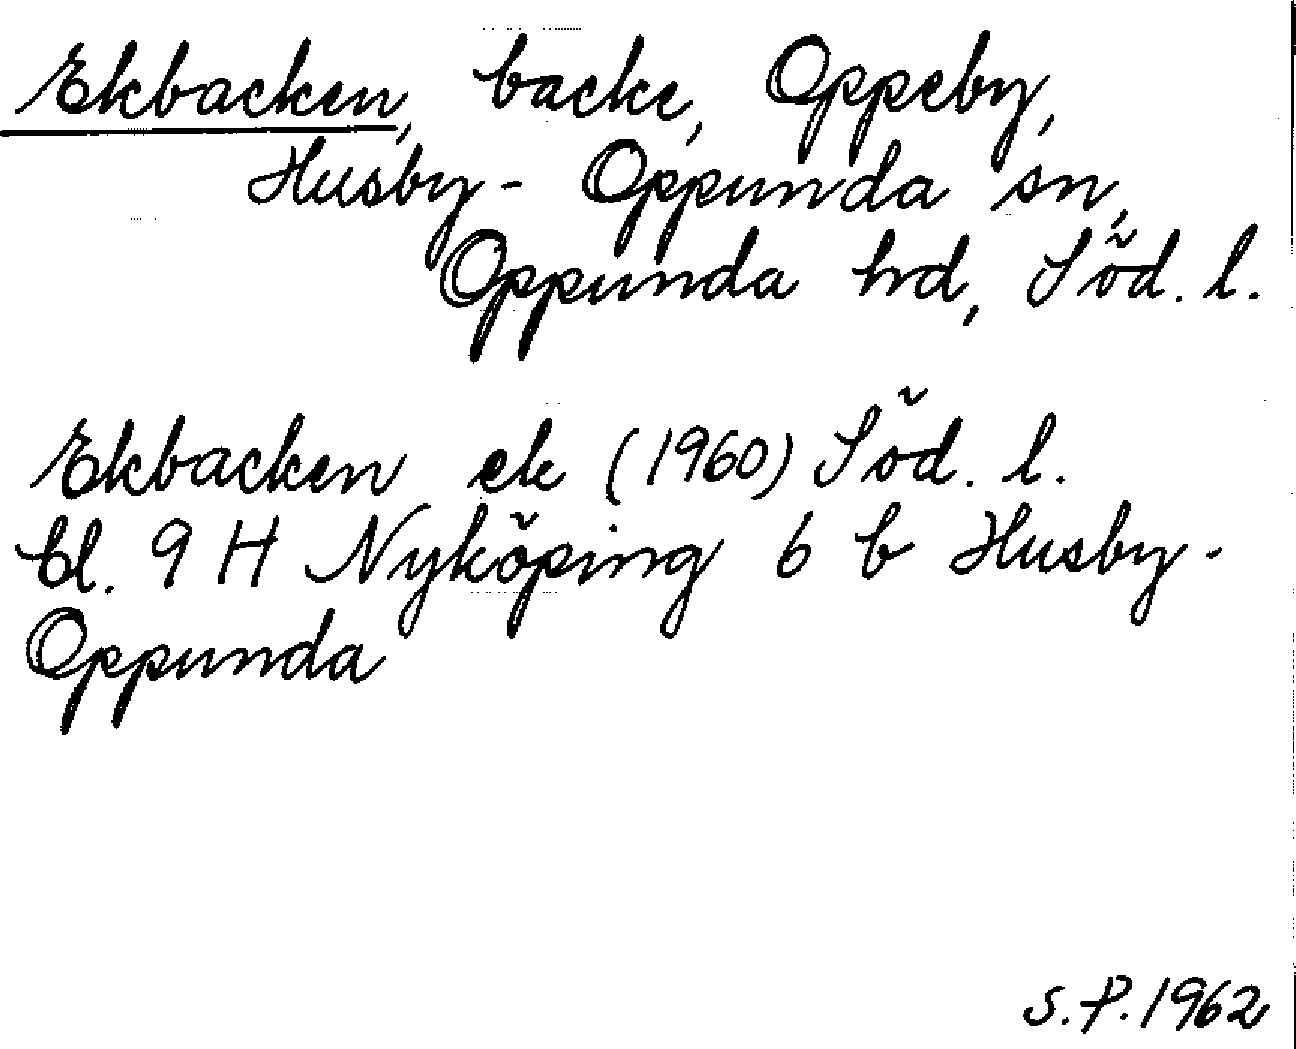 Ekbacken, backe, Oppeby,
Husby-Oppunda sn,
Oppunda hd, Söd. l.
Ekbacken ek (1960) Söd. l.
bl. 9 H Nyköping 6 b Husby-
Oppunda
S.P. 1962